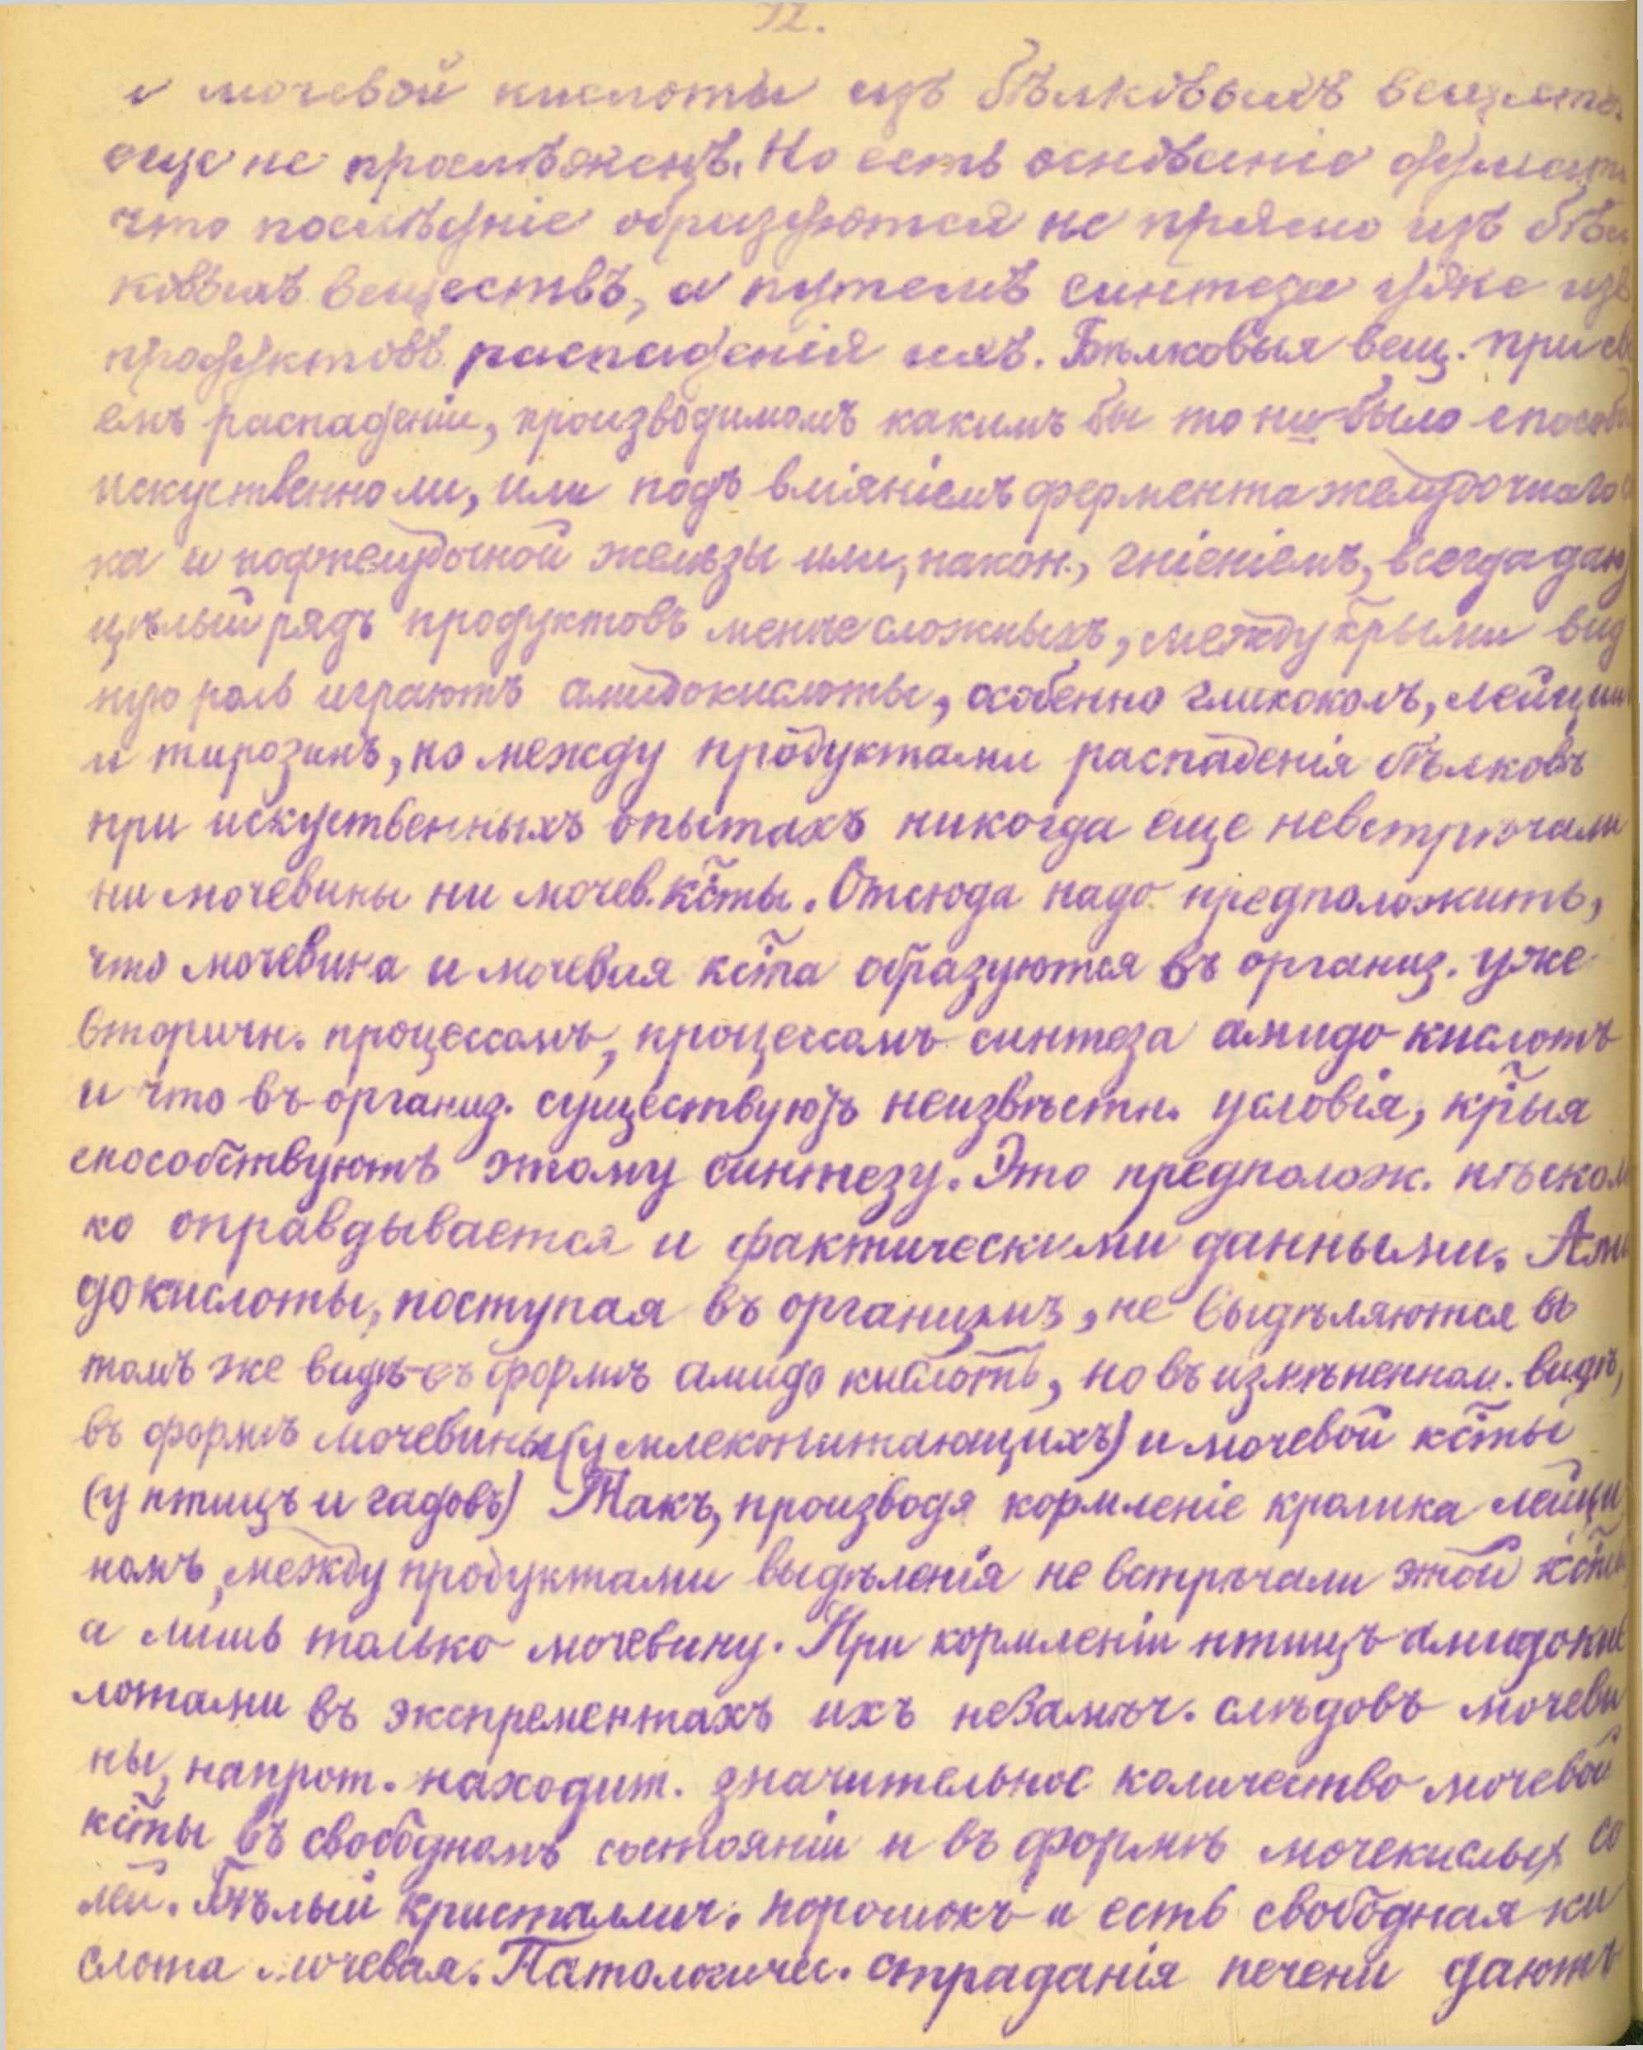 и мочевой кислоты изъ бѣлковыхъ веществ.
еще не прослѣженъ. Но есть основаніе думать
что послѣдніе образуются не прямо изъ бѣл
ковыхъ веществъ, а путемъ синтеза уже изъ
продуктовъ распаденія ихъ. Бѣлковыя вещ. при сво
емъ распаденіи, производимомъ какимъ бы то ни было способо
искуственно ли, или подъ вліяніемъ фермента желудочнаго со
ка и поджелудочной железы или, након., гніеніемъ, всегда даю
цѣлый рядъ продуктовъ менѣе сложныхъ, между крыми вид
ную роль играютъ амидокислоты, особенно гликоколъ, лейцинъ
и тирозинъ, но между продуктами распаденія бѣлковъ
при искуственныхъ опытахъ никогда еще невстрѣчали
ни мочевины ни мочев. ксты. Отсюда надо предположить,
что мочевина и мочевая кста образуются въ организ. уже
вторичн. процессомъ, процессомъ синтеза амидо кислотъ
и что въ организ. существуютъ неизвѣстн. условія, крыя
способствуютъ этому синтезу. Это предполож. нѣсколь
ко оправдывается и фактическими данными. Ами
докислоты, поступая въ организмъ, не выдѣляются въ
томъ же видѣ-въ формѣ амидо кислотъ, но въ измѣненном. видѣ,
въ формѣ мочевины (у млекопитающихъ) и мочевой ксты
(у птицъ и гадовъ) Такъ, производя кормленіе кролика лейци
номъ, между продуктами выдѣленія не встрѣчали этой ксты
а лишь только мочевину. При кормленіи птицъ амидокис
лотами въ экспрементахъ ихъ незамѣч. слѣдовъ мочеви
ны, напрот. находит. значительное количество мочевой
ксты въ свободномъ состояніи и въ формѣ мочекислых со
лей. Бѣлый кристаллич. порошокъ и есть свободная ки
слота мочевая. Патологичес. страданія печени даютъ